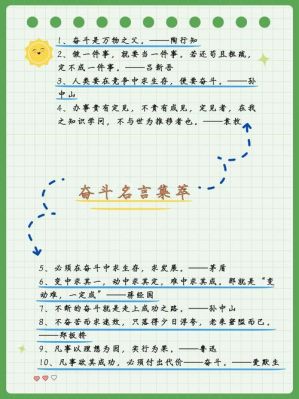 1、奋斗是万物之父。——陶行知
2、做一件事，就要当一件事。若还苟且粗疏，
定不成一件事。——吕新吾
3、人类要在竞争中求生存，便要奋斗。——孙
中山
4、办事贵有定见，不贵有成见，定见者，在我
之知识学问，不与世为推移者也。——袁枚
奋斗名言集萃
5、必须在奋斗中求生存，求发展。——茅盾
6、变中求其一，动中求其定，难中求其成。那就是“变
动难，一定成”——蒋经国
7、不断的奋斗就是走上成功之路。——孙中山
8、不奋苦而求速效，只落得少日浮夸，老来窘隘而已。
——郑板桥
9、凡事以理想为因，实行为果。——鲁迅
10、凡事欲其成功，必须付出代价——奋斗。——爱默生